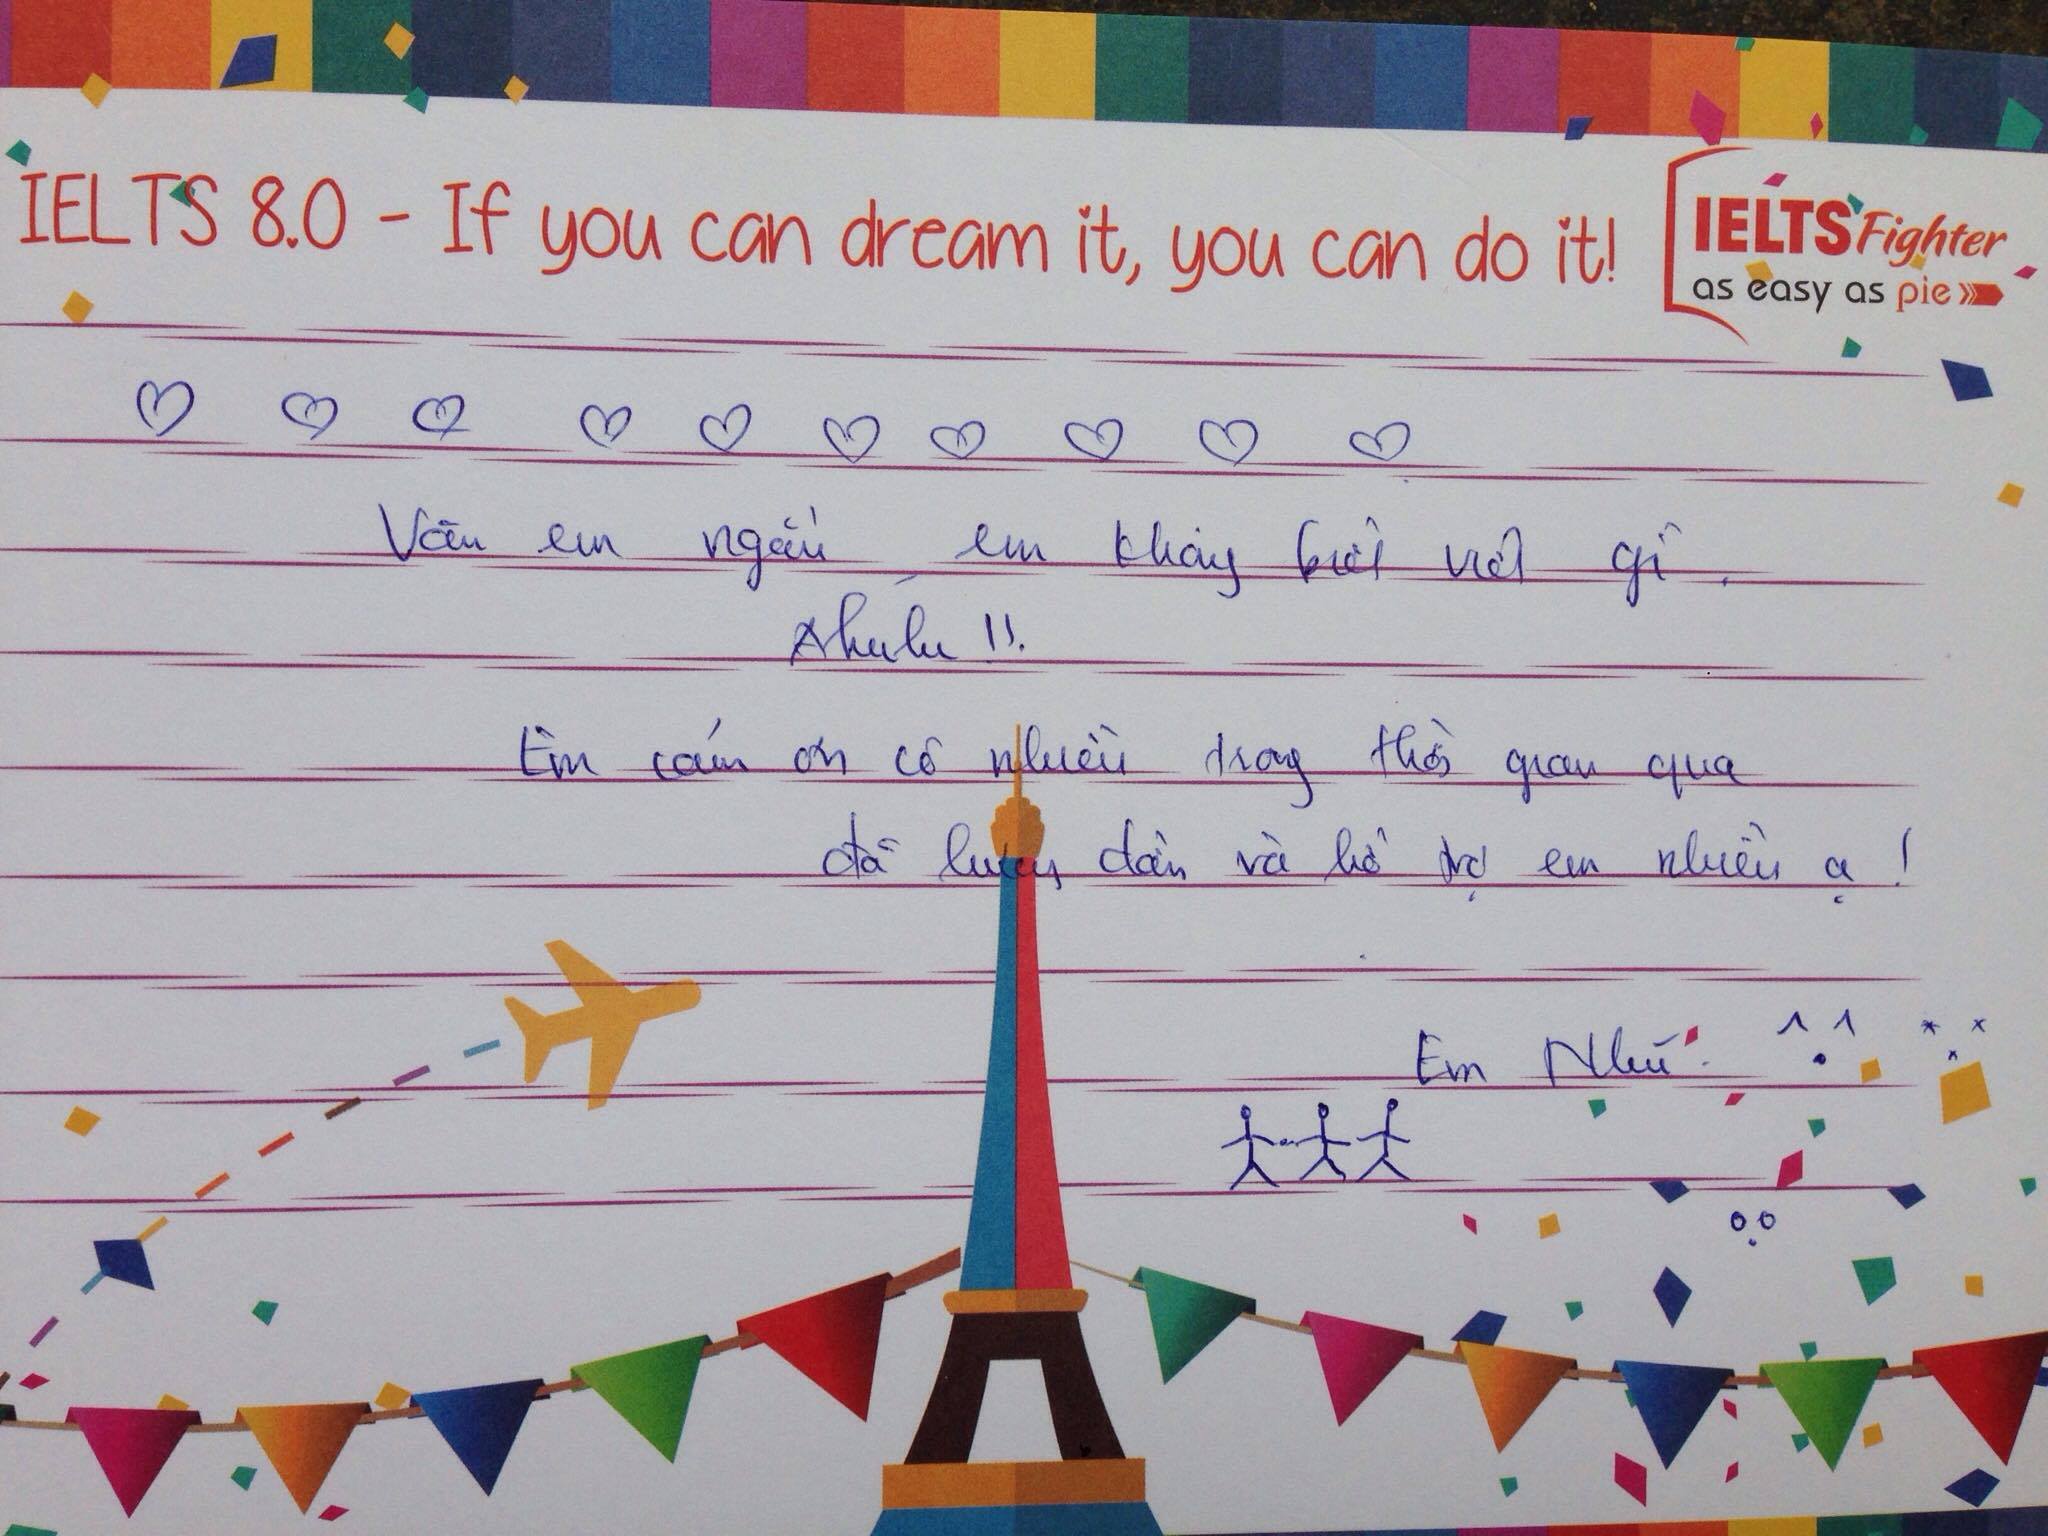 IELTS 8.0 - If you can dream it, you can do it!
IELTS Fighter
as easy as pie
Văn em ngắn em không biết viết gì.
Em cám ơn cô nhiều trong thời gian qua
đã hướng dẫn và hỗ trợ em nhiều ạ!
Em Như